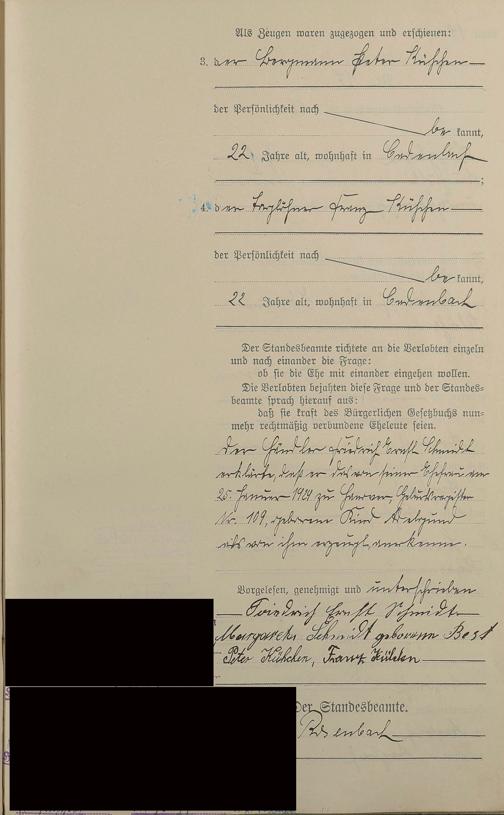 Als Zeugen waren zugezogen und erschienen:
3. der Bergmann Peter Küschen
der Persönlichkeit nach
be kannt,
22 Jahre alt, wohnhaft in
;
4. der Taglöhner Franz Küschen
der Persönlichkeit nach
be kannt,
22 Jahre alt, wohnhaft in
Der Standesbeamte richtete an die Verlobten einzeln
und nach einander die Frage:
ob sie die Ehe mit einander eingehen wollen.
Die Verlobten bejahten diese Frage und der Standes=
beamte sprach hierauf aus:
daß sie kraft des Bürgerlichen Gesetzbuchs nun=
mehr rechtmäßig verbundene Eheleute seien.
Der Händler Friedrich Ernst Schmidt
erklärte, daß er das von seiner Ehefrau am
25. Januar 1929 zu Geburtsregister
Nr. 109, geborene Kind
als von ihm erzeugt, anerkenne.
Vorgelesen, genehmigt und unterschrieben
Friedrich Ernst Schmidt
Margareta Schmidt geborene Best
Peter Franz
Der Standesbeamte.
Rosenbach